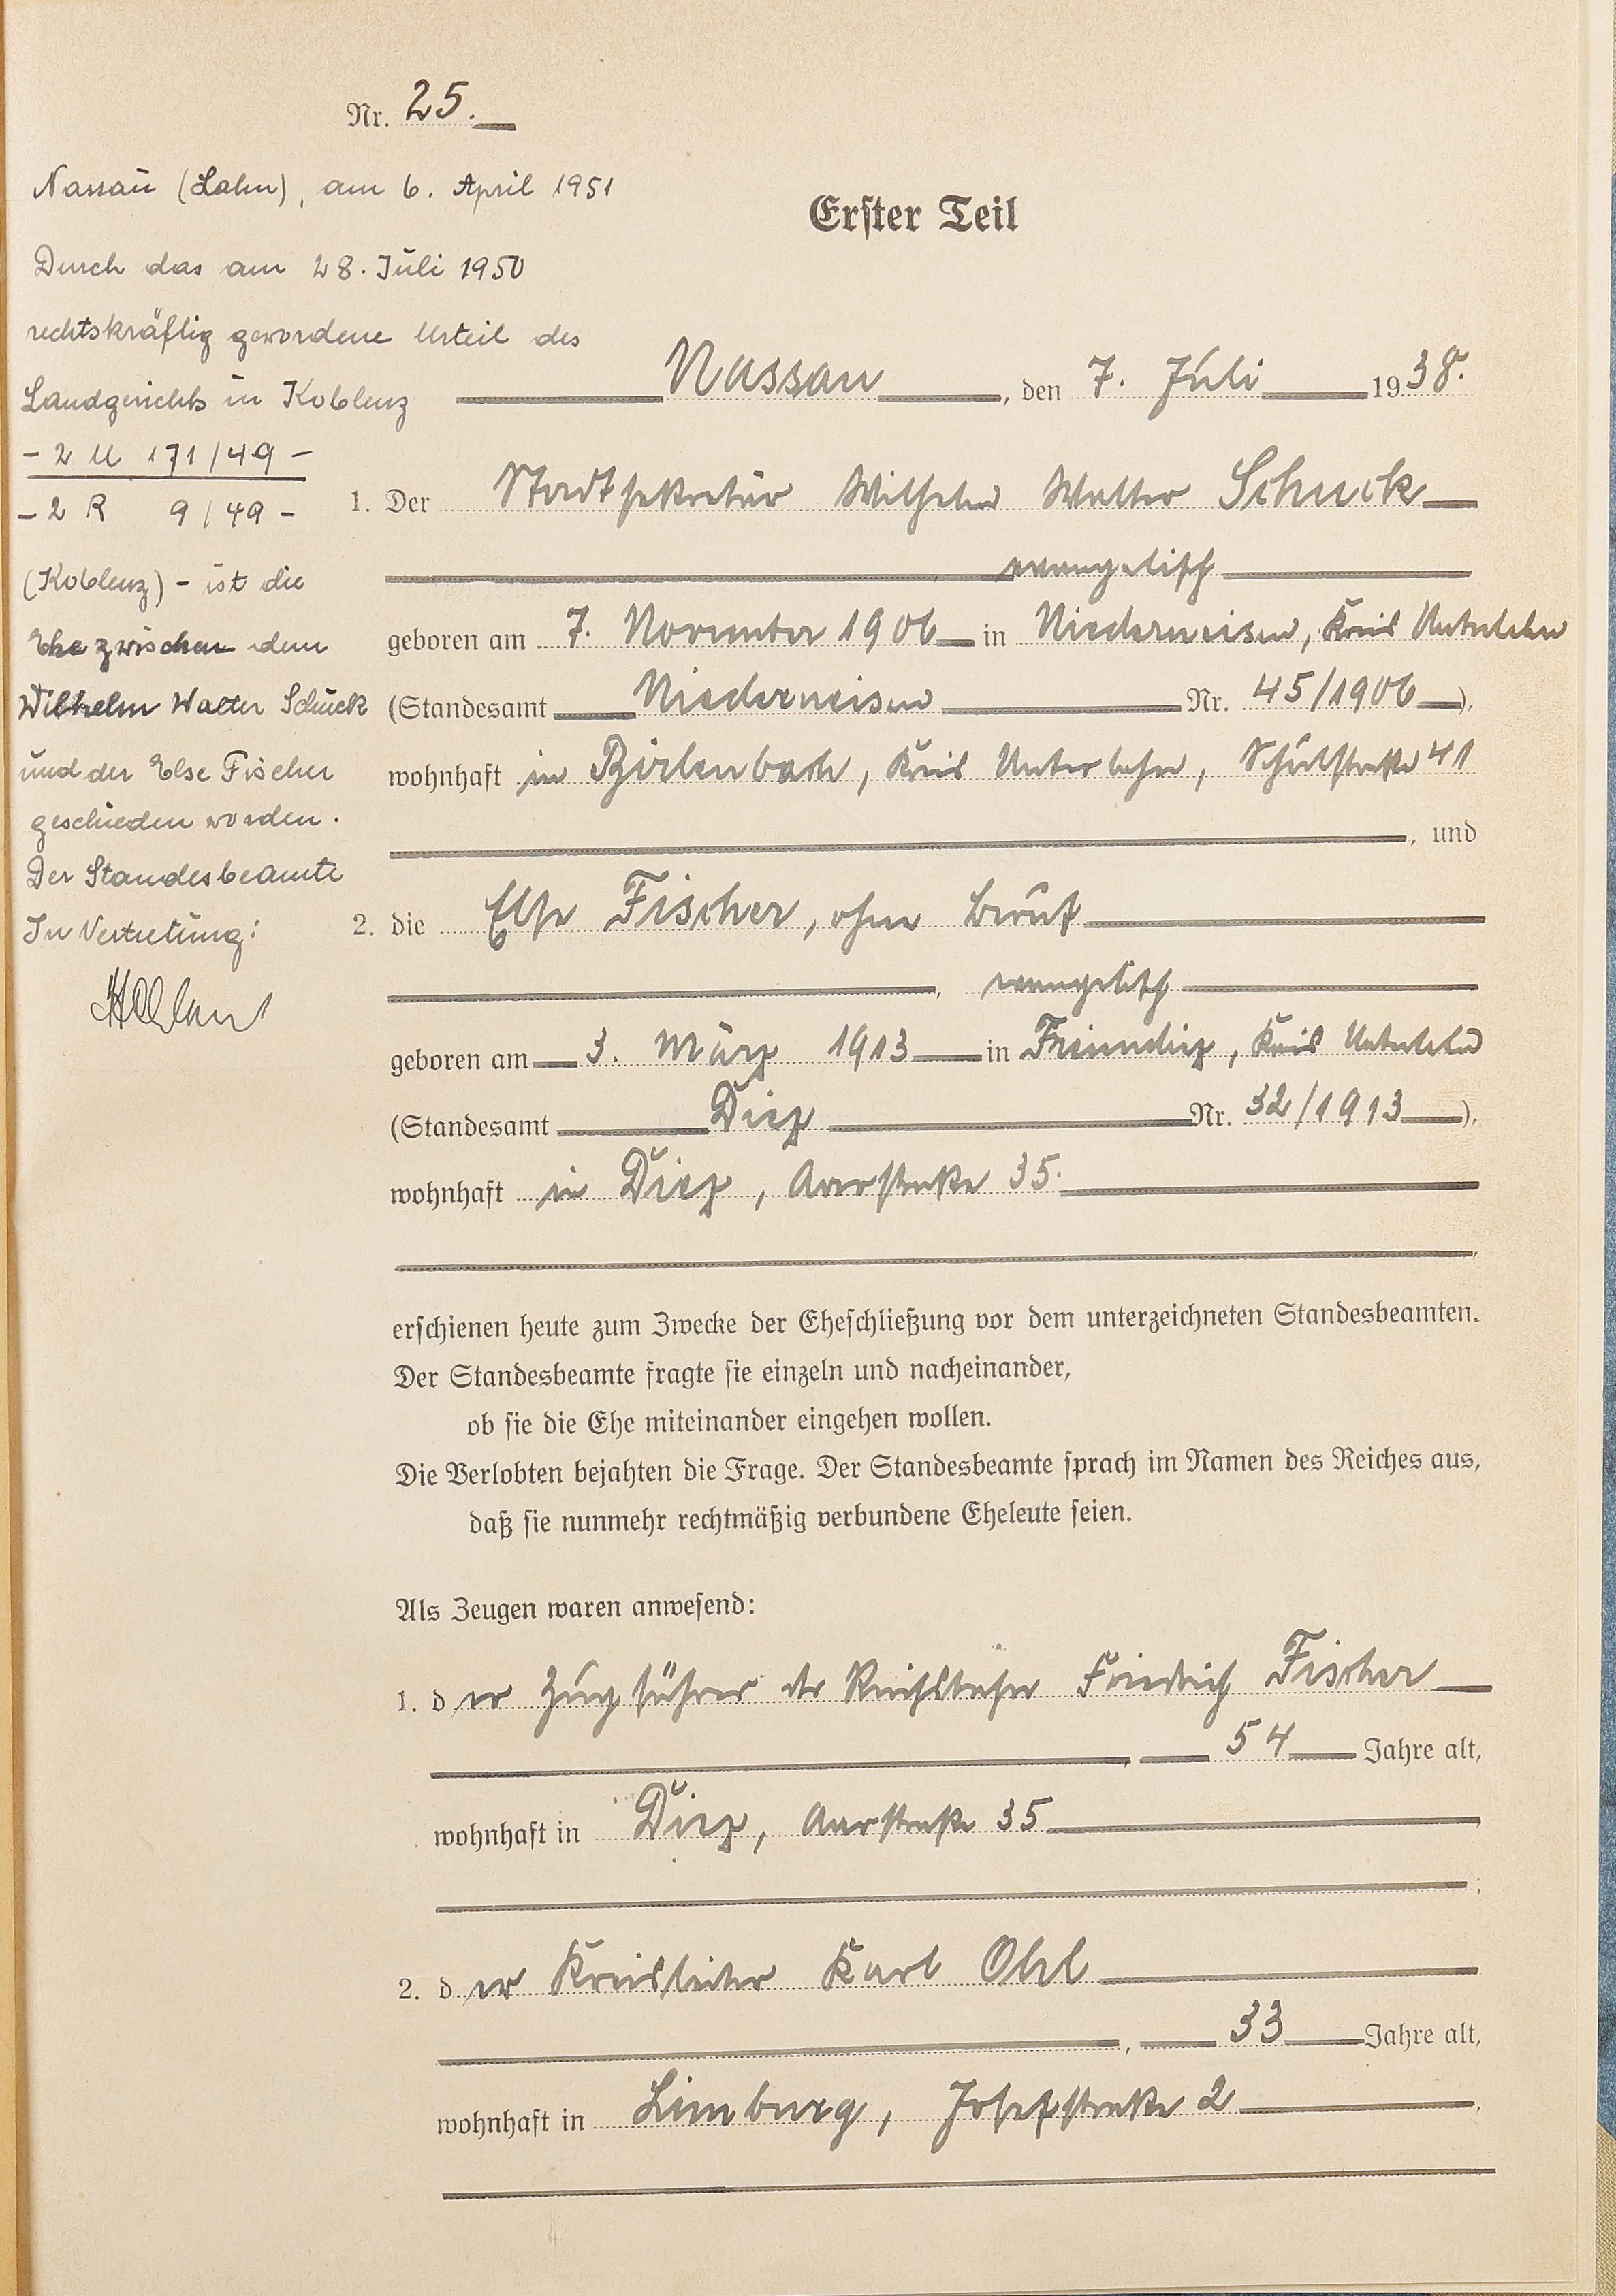 Nr. 25.
Nassau (Lahn), am 6. April 1951
Durch das am 28. Juli 1950
rechtskräftig gewordene Urteil des
Landgerichts in Koblenz
- 2 U 171/49 -
- 2 R 9/49 -
(Koblenz) - ist die
Ehe zwischen dem
Wilhelm Walter Schuck
und der Else Fischer
geschieden worden.
Der Standesbeamte
In Vertretung:
Erster Teil
Nassau, den 7. Juli 1938.
1. Der Stadtsekretär Wilhelm Walter Schuck
, evangelisch
geboren am 7. November 1906 in Niederneisen, Kreis Unterlahn
(Standesamt Niederneisen Nr. 45/1906),
wohnhaft in Birlenbach, Kreis Unterlahn, Schulstraße 41
, und
2. die Else Fischer, ohne Beruf
, evangelisch
geboren am 3. März 1913 in Freiendiez, Kreis Unterlahn
(Standesamt Diez Nr. 32/1913),
wohnhaft in Diez, Aarstraße 35.
erschienen heute zum Zwecke der Eheschließung vor dem unterzeichneten Standesbeamten.
Der Standesbeamte fragte sie einzeln und nacheinander,
ob sie die Ehe miteinander eingehen wollen.
Die Verlobten bejahten die Frage. Der Standesbeamte sprach im Namen des Reiches aus,
daß sie nunmehr rechtmäßig verbundene Eheleute seien.
Als Zeugen waren anwesend:
1. der Zugführer der Reichsbahn Friedrich Fischer
, 54 Jahre alt,
wohnhaft in Diez, Aarstraße 35
;
2. der Kreisleiter Karl Ohl
, 33 Jahre alt,
wohnhaft in Limburg, Josefstraße 2.